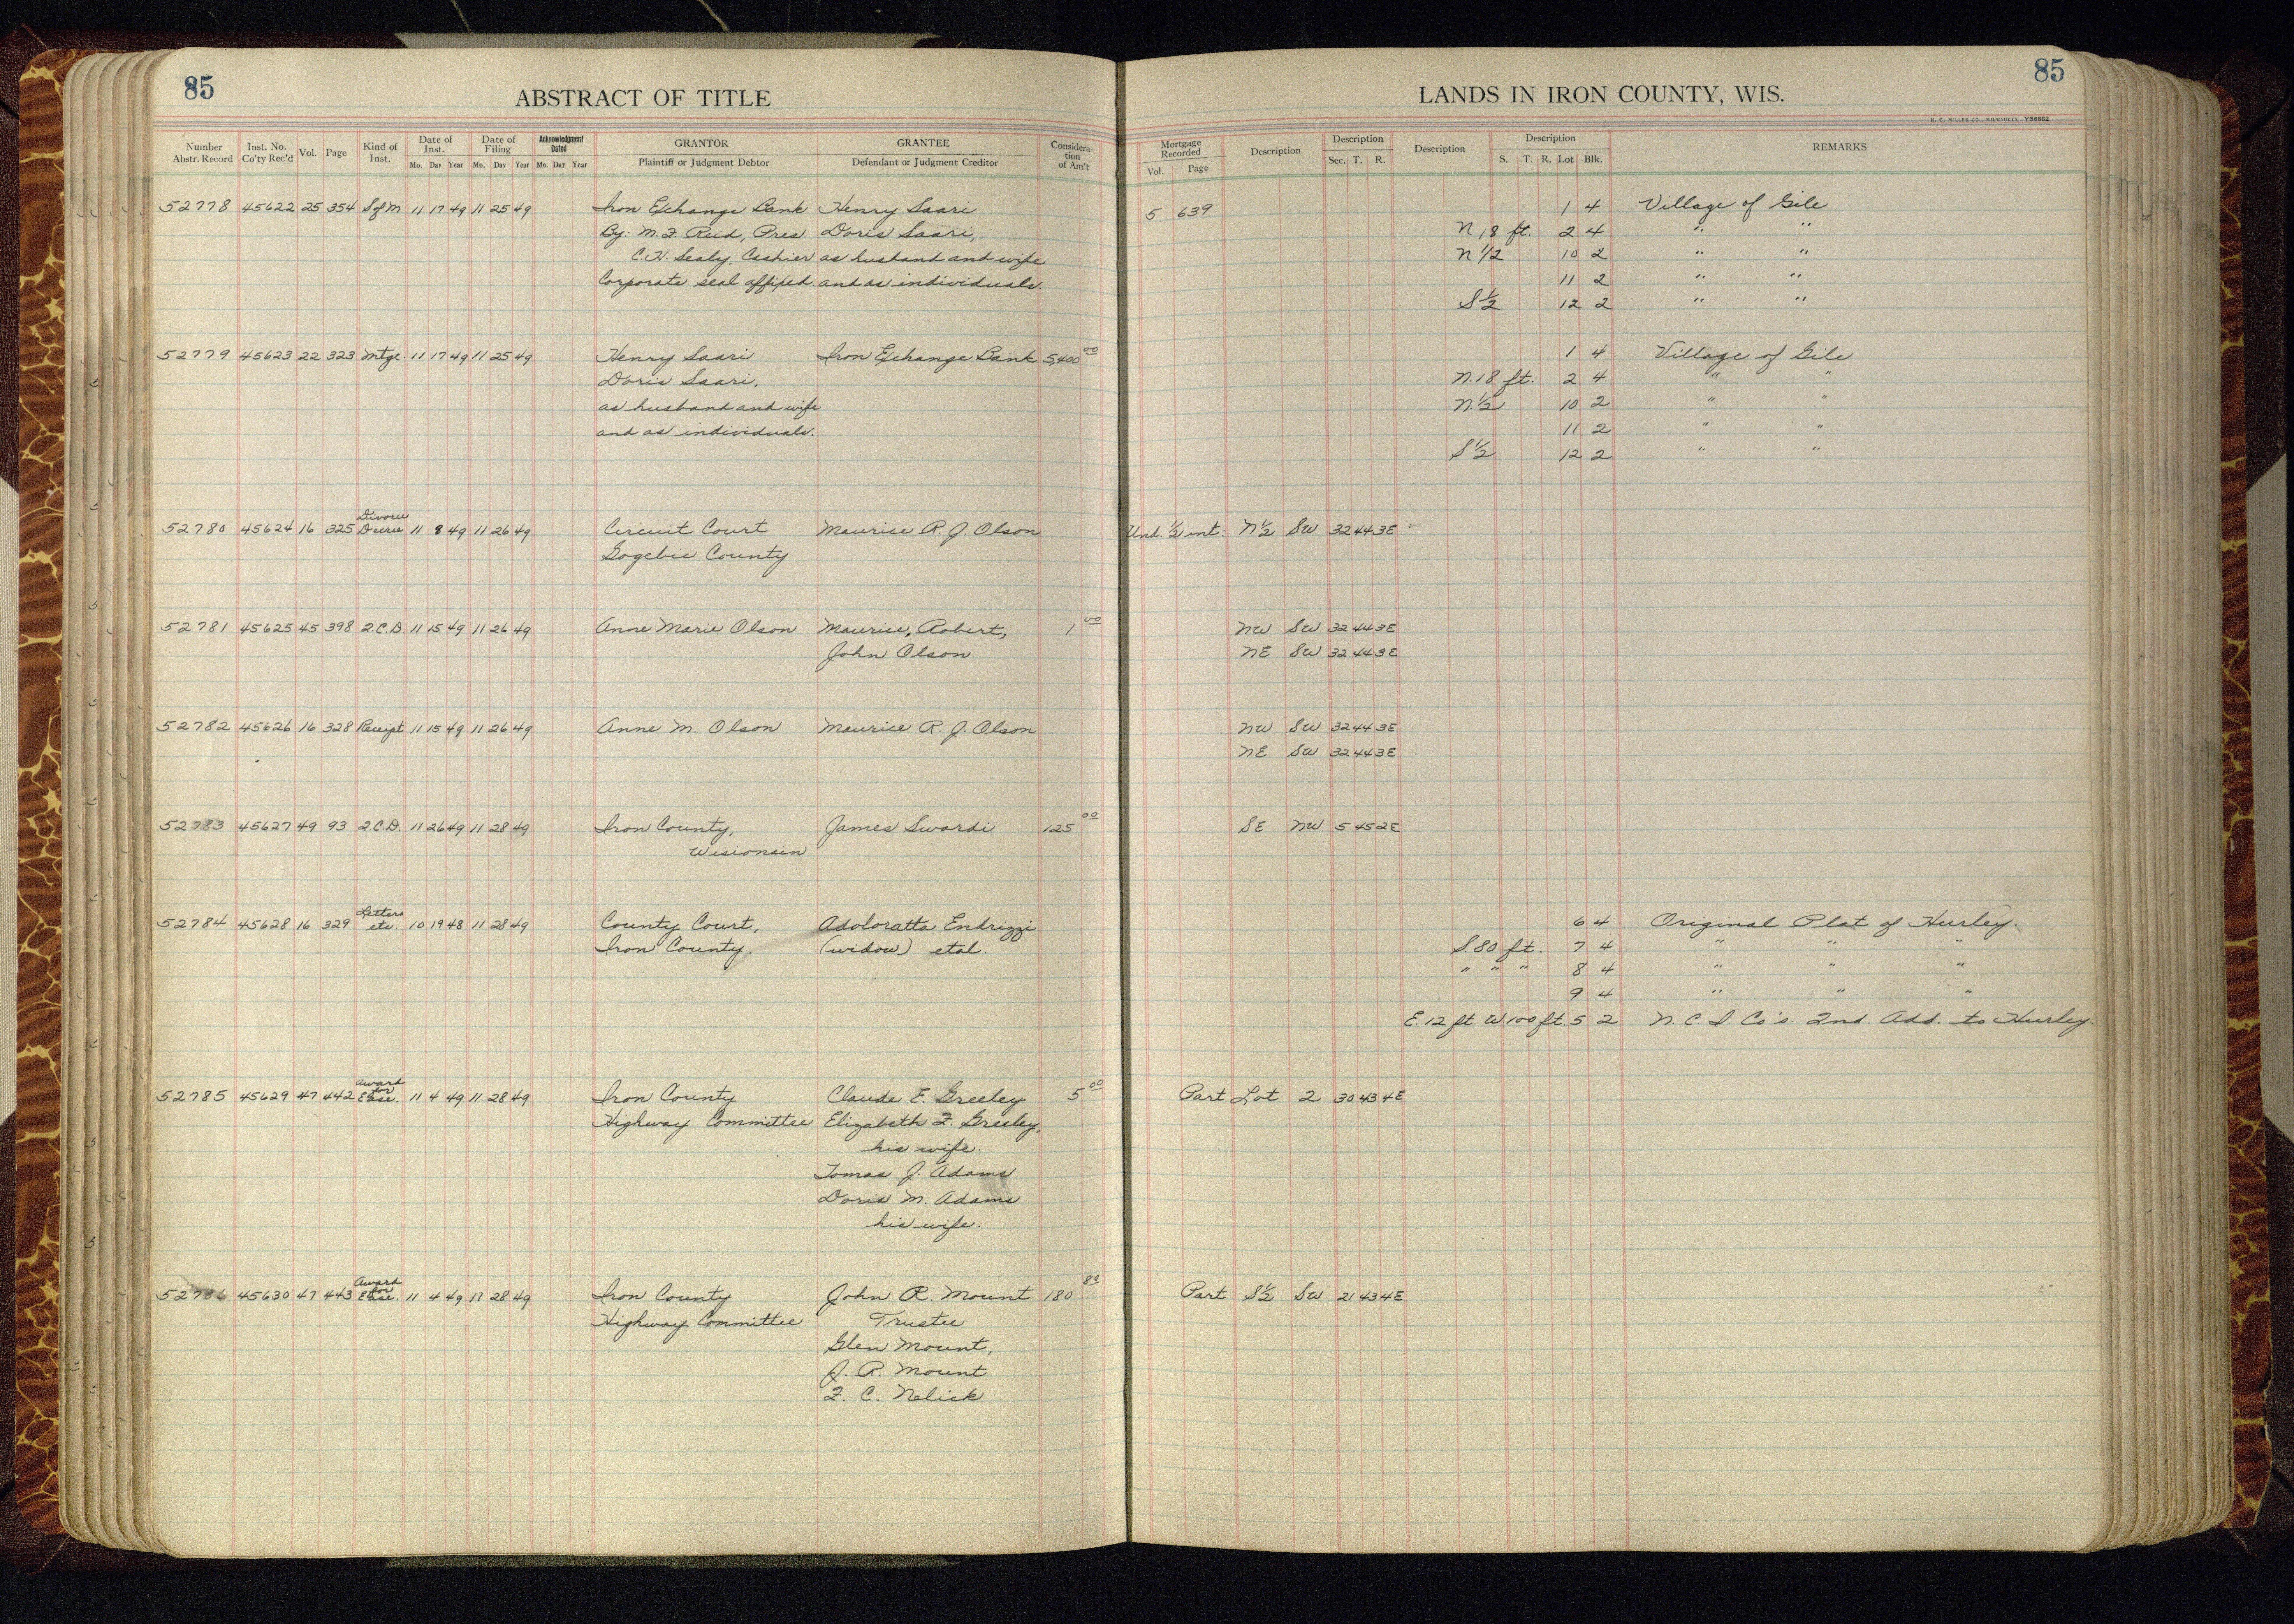 85
ABSTRACT OF TITLE
LANDS IN IRON COUNTY, WIS.
85
H. C. MILLER CO., MILWAUKEE Y56862
Number Abstr. Record Inst. No. Co'ty Rec'd Vol. Page Kind of Inst. Date of Inst. Mo. Day Year Date of Filing Mo. Day Year Acknowledgment Dated Mo. Day Year GRANTOR Plaintiff or Judgment Debtor GRANTEE Defendant or Judgment Creditor Considera-tion of Am't Mortgage Recorded Vol. Page Description Description Sec. T. R. Description Description S. T. R. Lot Blk. REMARKS
52778 45622 25 354 S of M 11 17 49 11 25 49 Iron Exchange Bank Henry Saari 5 639 1 4 Village of Gile
By: M. F. Reid, Pres. Doris Saari, N 18 ft. 2 4 " "
C. H. Sealy, Cashier as husband and wife N 1/2 10 2 " "
Corporate seal affixed. and as individuals. 11 2 " "
S 1/2 12 2 " "
52779 45623 22 323 Mtge. 11 17 49 11 25 49 Henry Saari Iron Exchange Bank 5,400 00 1 4 Village of Gile
Doris Saari, N. 18 ft. 2 4 " "
as husband and wife N. 1/2 10 2 " "
and as individuals. 11 2 " "
S 1/2 12 2 " "
52780 45624 16 325 Divorce Decree 11 8 49 11 26 49 Circuit Court Maurice R. J. Olson Und. 1/2 int. N 1/2 SW 32 44 3E
Gogebic County
52781 45625 45 398 2.C.D. 11 15 49 11 26 49 Anne Marie Olson Maurice, Robert, 1 00 NW SW 32 44 3E
John Olson NE SW 32 44 3E
52782 45626 16 328 Receipt 11 15 49 11 26 49 Anne M. Olson Maurice R. J. Olson NW SW 32 44 3E
NE SW 32 44 3E
52783 45627 49 93 2.C.D. 11 26 49 11 28 49 Iron County, James Swardi 125 00 SE NW 5 45 2E
Wisionsin
52784 45628 16 329 Letters etc. 10 19 48 11 28 49 County Court, Adoloratta Endrizzi 6 4 Original Plat of Hurley.
Iron County. (widow) etal. S. 80 ft. 7 4 " " "
" " " 8 4 " " "
9 4 " " "
E. 12 ft. W. 100 ft. 5 2 N. C. I. Co's. 2nd. Add. to Hurley.
52785 45629 47 442 Award for Ease. 11 4 49 11 28 49 Iron County Claude E. Greeley 5 00 Part Lot 2 30 43 4E
Highway Committee Elizabeth F. Greeley,
his wife.
Tomas J. Adams
Doris M. Adams
his wife.
52786 45630 47 443 Award for Ease. 11 4 49 11 28 49 Iron County John R. Mount 180 80 Part S 1/2 SW 21 43 4E
Highway Committee Trustee
Glen Mount,
J. R. Mount
F. C. Nelick